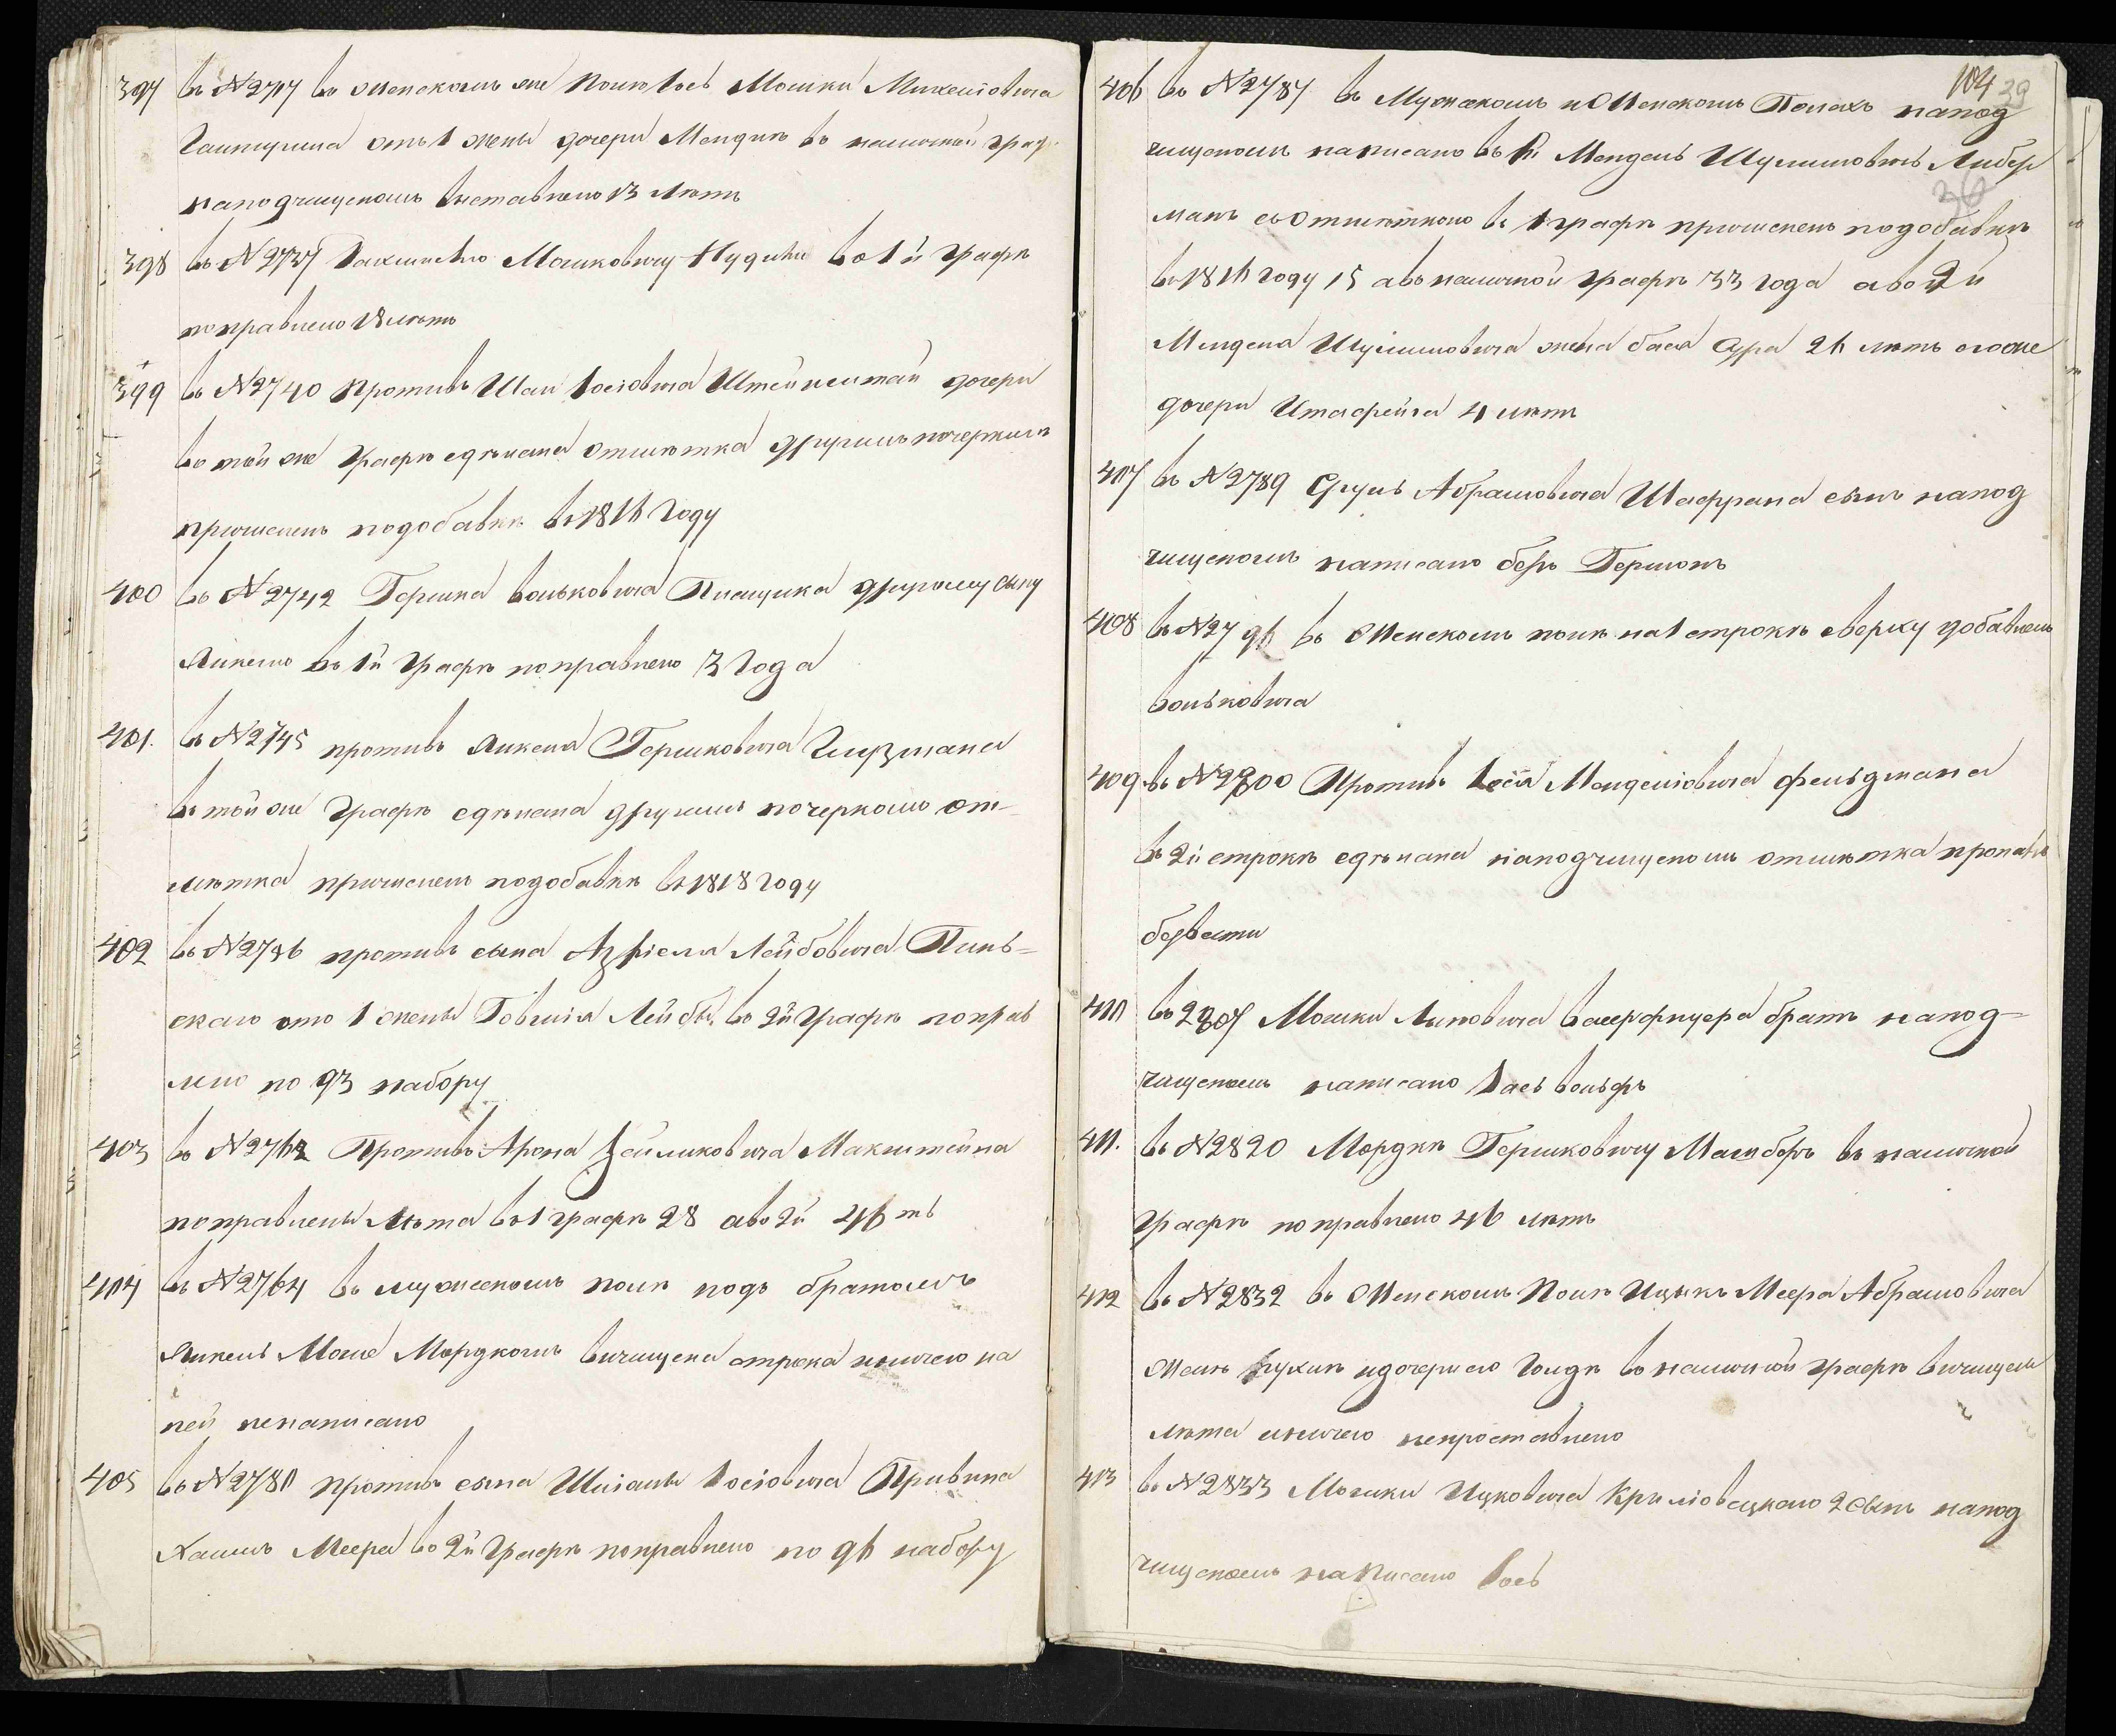 397 въ №2717 въ Женскомъ же полѣ Іось Мошки Михелiовича
Гантмана отъ 1 жены дочери Мендик въ наличной граф
наподчищеномъ выставлено 13 лѣтъ
398 въ №2737 Іахилю Мошковичу Нудик во 1й графѣ
поправлено 18 лѣтъ
399 въ №2740 противъ Шаи Іосіовича Штейн дочери
въ той же графѣ сдѣлана отмѣтка другимъ почеркомъ
причисленъ подобавкѣ въ 1816 году
400 въ №2742 Гершка Вольковича Пищика другому сыну
Янкелю въ 1й графѣ поправлено 3 года
401. въ №2745 противъ Янкеля Гершковича Гирзмана
въ той же графѣ сдѣлана другимъ почеркомъ от-
мѣтка причисленъ подобавкѣ въ 1818 году
402 въ №2746 противъ сына Азріеля Лейбовича Пинь-
скаго ото 1 жены Говшія Лейбы во 2й графѣ поправ
лено по 93 набору
403 въ №2762 Противъ Арона Зейликовича Макштейна
поправлены лѣта въ 1 графѣ 28 а во 2й 46ть
404 въ №2764 въ мужескомъ полѣ подъ братомъ
Янкель Моше Мордкомъ вычищена строка и ничего на
ней ненаписано
405 въ №2780 противъ сына Шліомы Іосіовича Привина
Хаимъ Меера во 2й графѣ поправлено по 96 набору
104 39
406 въ №2787 въ Мужескомъ и Женскомъ Полахъ напод
чищеномъ написано въ 1й Мендель Шулимовичъ Либер
36
манъ съ Отмѣткою въ 1 графѣ причисленъ подобавкѣ
въ 1816 году 15 а въ наличной графѣ 33 года а во 2й
Менделя Шулимовича жена Бася Сура 26 лѣтъ и его же
дочери Итафейга 4 лѣтъ
407 въ №2789 Сруль Абрамовича Шаффрана сынъ напод
чищеномъ написано Беръ Гершонъ
408 въ №2796 въ Женскомъ полѣ на 1 строкѣ сверху добавлено
Вольковича
409 въ №2800 Противъ Іося Менделіовича Фельдмана
въ 2й строкѣ сдѣлана наподчищеномъ отмѣтка пропалъ
безвести
410 въ 2807 Мошки Ликовича братъ напод-
чищеномъ написано Іось Вольфъ
411. въ №2820 Мордкѣ Гершковичу въ наличной
графѣ поправлено 46 лѣтъ
412 въ №2832 въ Женскомъ Полѣ Ицькъ Меера Абрамовича
женѣ Рухлѣ и дочери его Голдѣ въ наличной графѣ вычищены
лѣта и ничего непроставлено
413 въ №2833 Мошки Ицковича Крыліовецкаго 2 сынъ напод
чищеномъ написано Іось